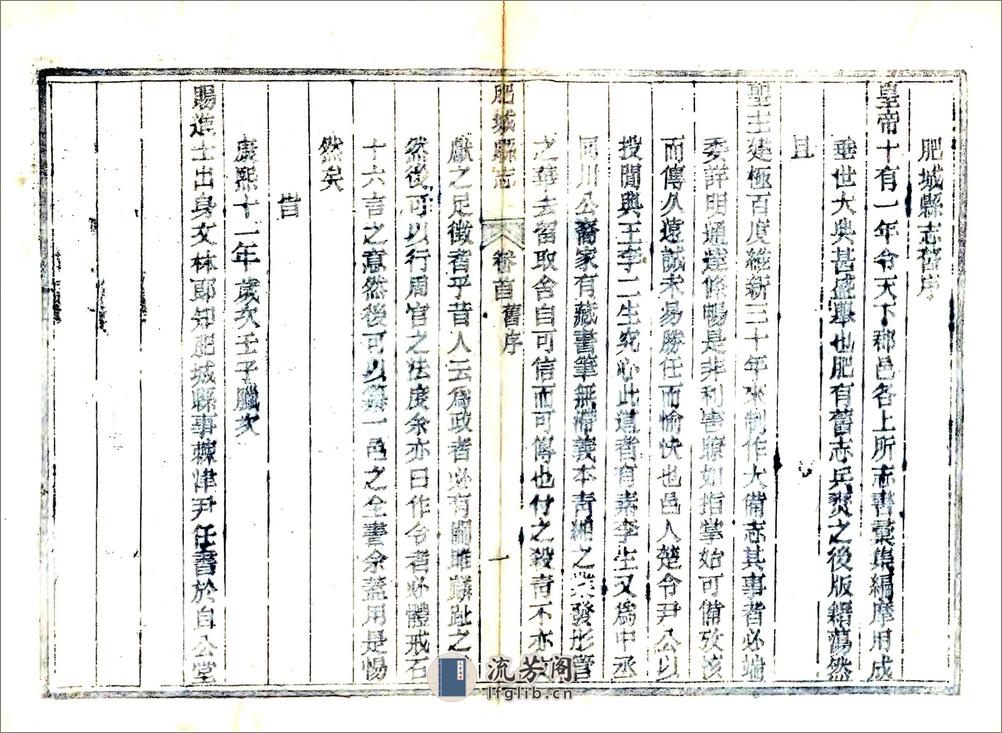 肥城縣志舊序
皇帝十有一年令天下郡邑各上所志書彙集編摩用成
垂世大典甚盛舉也肥有舊志兵燹之後版籍蕩然
且
聖主建極百度維新三十年來制作大備志其事者必
委詳明通達條暢是非利害瞭如指掌始可備攷
而傳久遠誠未易勝任而愉快也邑人楚令尹公以
投閒與王李二生究心此道者有素李生又為中丞
同川公裔家有藏書筆無滯義本青緗之業發形管
之華去留取舍自可信而可傳也付之殺青不亦
肥城縣志
卷首
舊序
一
獻之足徵者乎昔人云為政者必有關雎麟趾之
然後可以行周官之法度余亦曰作令者必體戒石
十六言之意然後可以纂一邑之全書余蓋用是惕
然矣
旹
康熙十一年歲次壬子臘次
賜進士出身文林郎知肥城縣事棘津尹任書於自公堂
流芳阁
lfglib.cn